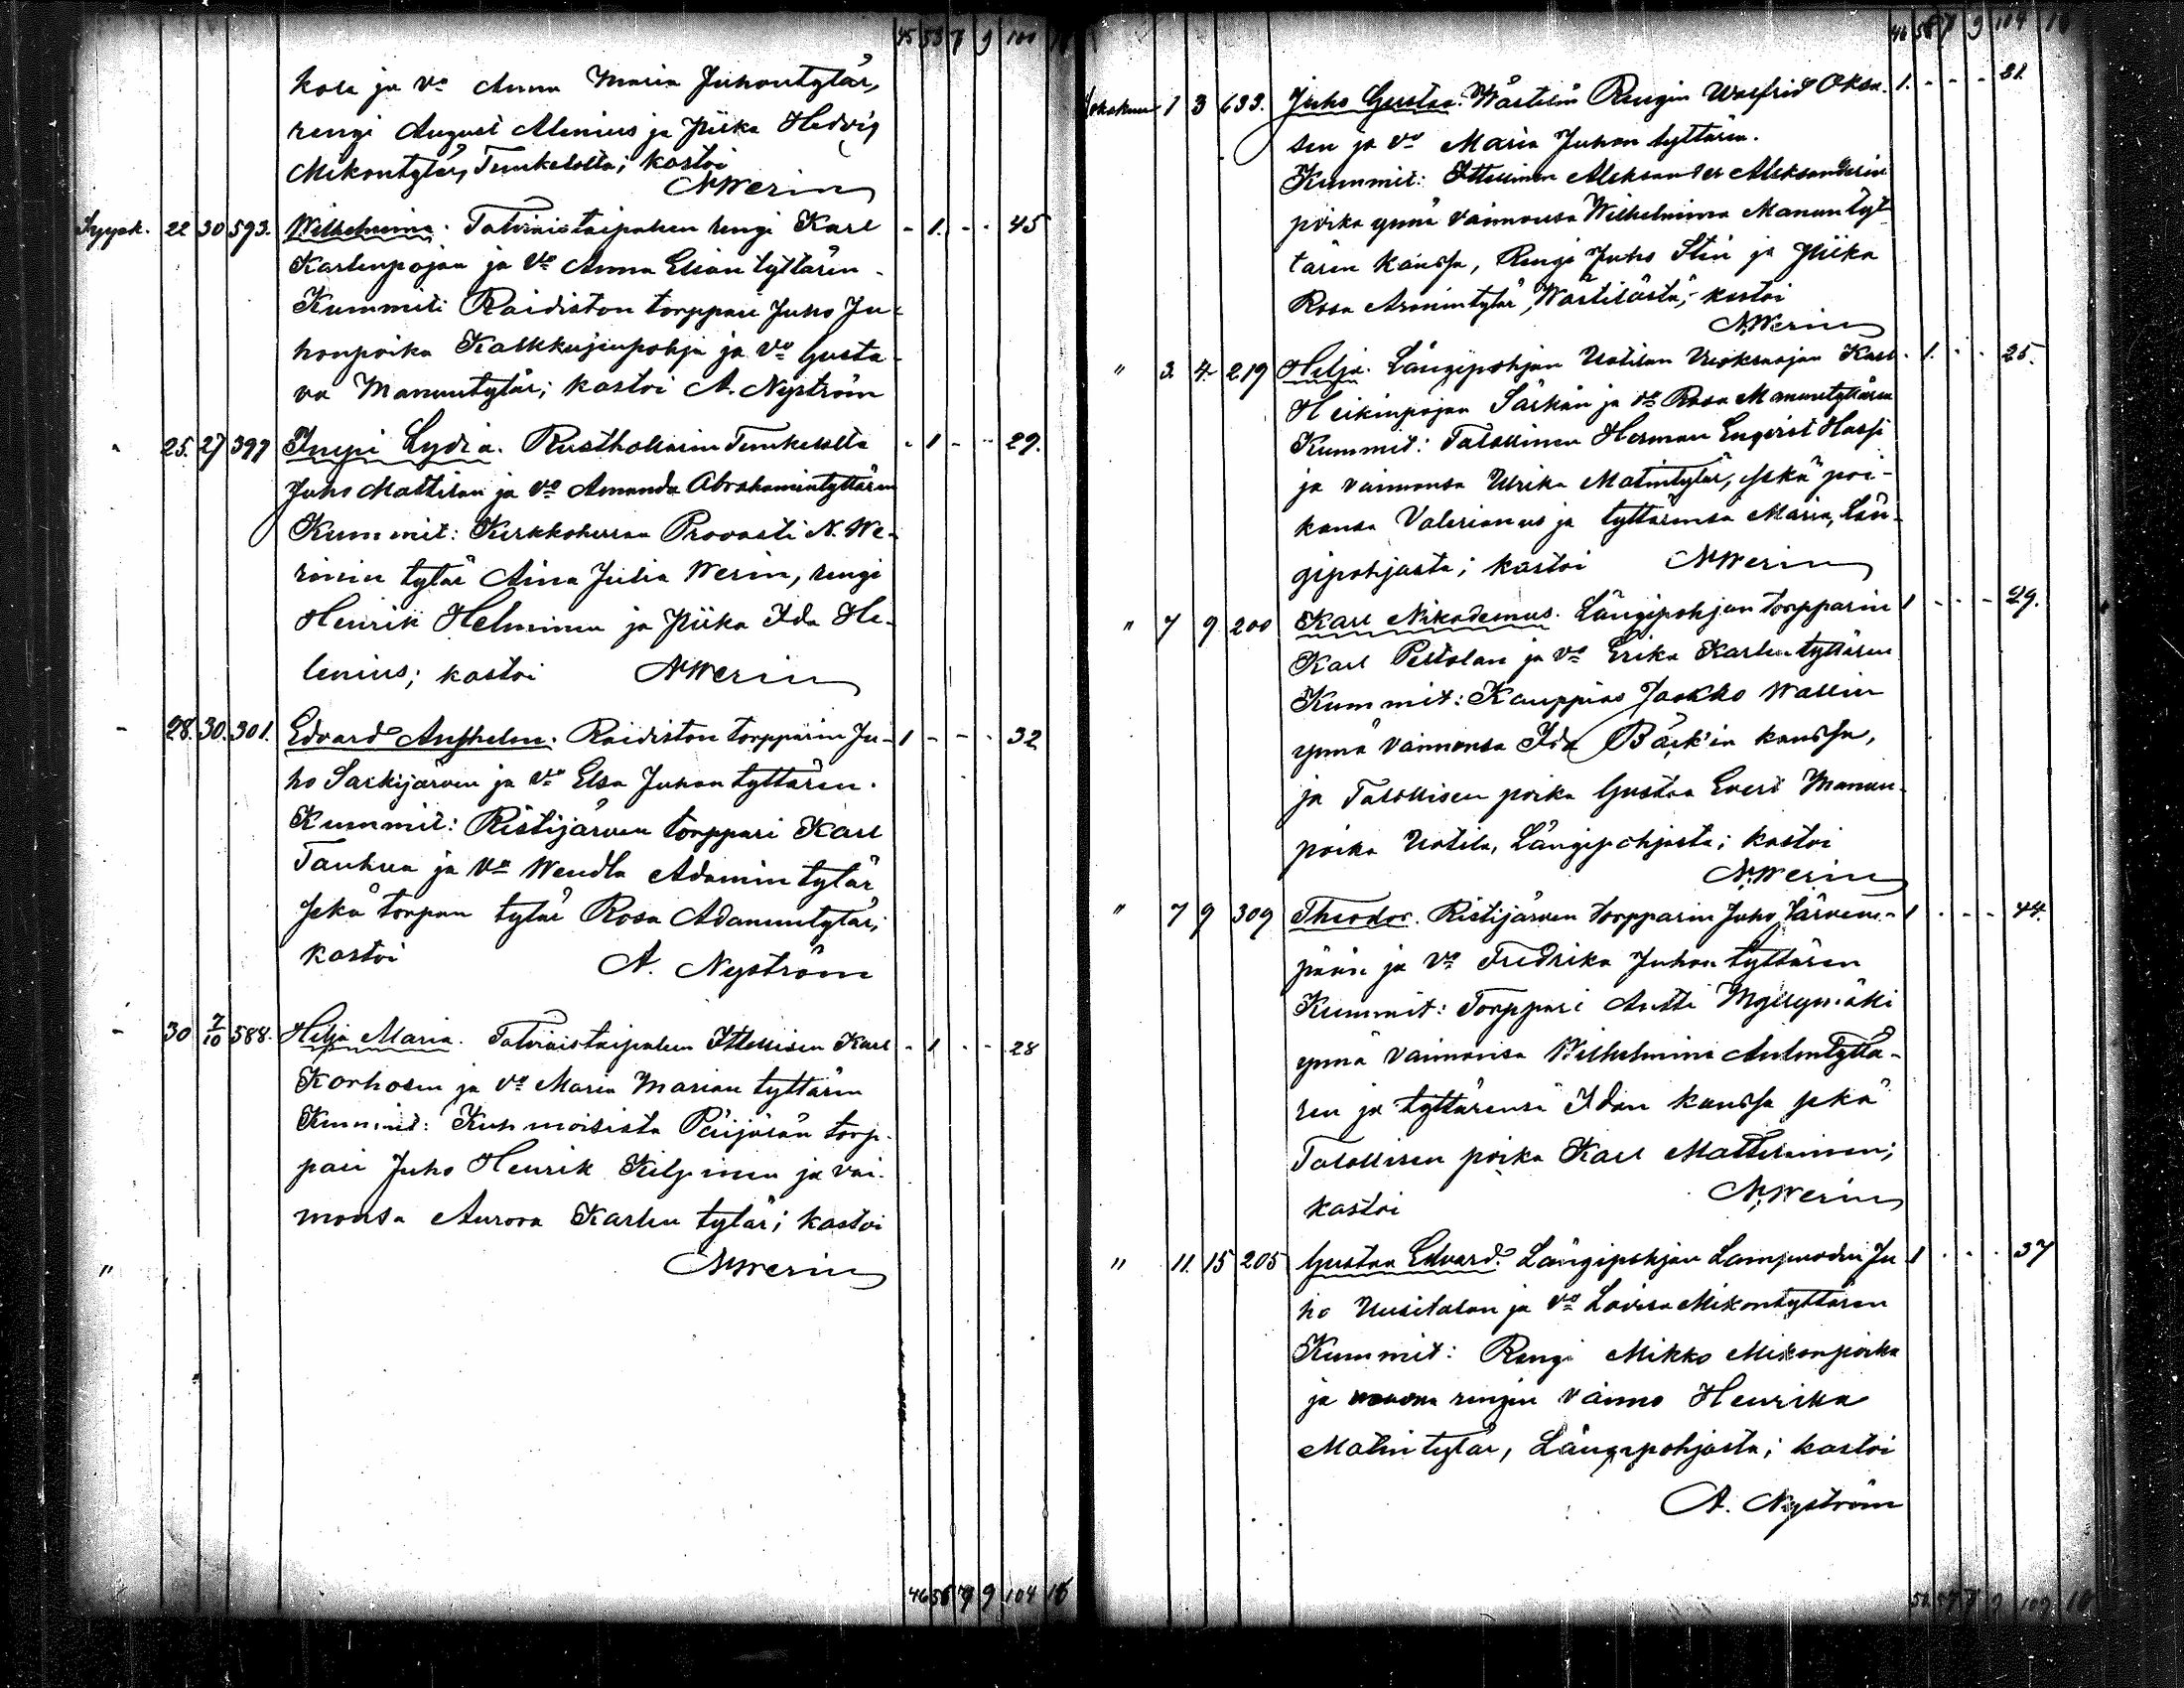 45 53 7 9 100
kola ja vo Anna Maria Juhontytär,
rengi August Alenius ja piika Hedvig
Mikontytär, Tunkelolta; kastoi
NWerin
Syysk. 22 30 593. Wilhelmina. Talviaistaipaleen rengi Karl - 1. - - 45
Karlenpojan ja vo Anna Elian tyttären.
Kummit: Raidiston torppari Juho Ju-
honpoika Kalkkujenpohja ja vo Gusta-
va Manuntytär; kastoi A. Nyström
" 25. 27 397 Impi Lydia. Rusthollarin Tunkelolta - 1 - - 29.
Juho Mattilan ja vo Amanda Abrahamintyttären
Kummit: Kirkkoherran Provasti N. We-
rinin tytär Aina Julia Werin, rengi
Henrik Helminen ja piika Ida He-
lenius; kastoi NWerin
- 28. 30. 301. Edvard Anshelm. Raidiston torpparin Ju- 1 - - - 32
ho Särkijärven ja vo Elsa Juhon tyttären.
Kummit: Ristijärven torppari Karl
Tauhua ja vo Wendla Adamin tytär
sekä torpan tytär Rosa Adamintytär;
kastoi A. Nyström
- 30 7/10 588. Hilja Maria. Talviaistaipaleen Ittellisen Karl - 1 - - 28
Korhosen ja vo Maria Marian tyttären
Kummit: Kuhmoisista Päijälän torp-
pari Juho Henrik Kilpinen ja vai-
monsa Aurora Karlen tytär; kastoi
NWerin
"
46 56 7 9 104 16
46 56 7 9 104 16
Lokakuu 1 3 633. Juho Gustaa. Wästilän Rengin Walfrid Oksa- 1. - - - 31.
sen ja vo Maria Juhon tyttären.
Kummit: Ittellinen Aleksander Aleksanterin
poika ynnä vaimonsa Wilhelmina Manun tyt-
tären kanssa, Rengi Juho Stin ja piika
Rosa Aronintytär, Wästilästä; kastoi
NWerin
" 3. 4. 219 Hilja. Längipohjan Uotilan Vuokraajan Karl - 1. - - 25.
Heikinpojan Särkän ja vo Rosa Manuntyttären
Kummit: Talollinen Herman Engvist Hassi
ja vaimonsa Ulrika Matintytär, sekä poi-
kansa Valerianus ja tyttärensä Maria, Län-
gipohjasta; kastoi NWerin
" 7 9 200 Karl Nikodemus. Längipohjan torpparin 1 - - - 29.
Karl Peltolan ja vo Erika Karlen tyttären
Kummit: Kauppias Jaakko Wallin
ynnä vaimonsa Ida Bäck'in kanssa,
ja Talollisen poika Gustaa Evert Manun-
poika Uotila, Längipohjasta; kastoi
N.Werin
" 7 9 309 Theodor. Ristijärven torpparin Juho Järven- 1 - - - 44.
pään ja vo Fredrika Juhon tyttären
Kummit: Torppari Antti Myllymäki
ynnä vaimonsa Wilhelmina Antintyttä-
ren ja tyttärensä Idan kanssa sekä
Talollisen poika Karl Mattilainen;
kastoi N.Werin
" 11. 15 205 Gustaa Edvard. Längipohjan Lampuodin Ju- 1 - - - 37
ho Uusitalon ja vo Lovisa Mikontyttären
Kummit: Rengi Mikko Mikonpoika
ja rengin vaimo Henrika
Matin tytär, Längipohjasta; kastoi
A. Nyström
50 57 7 9 109 16